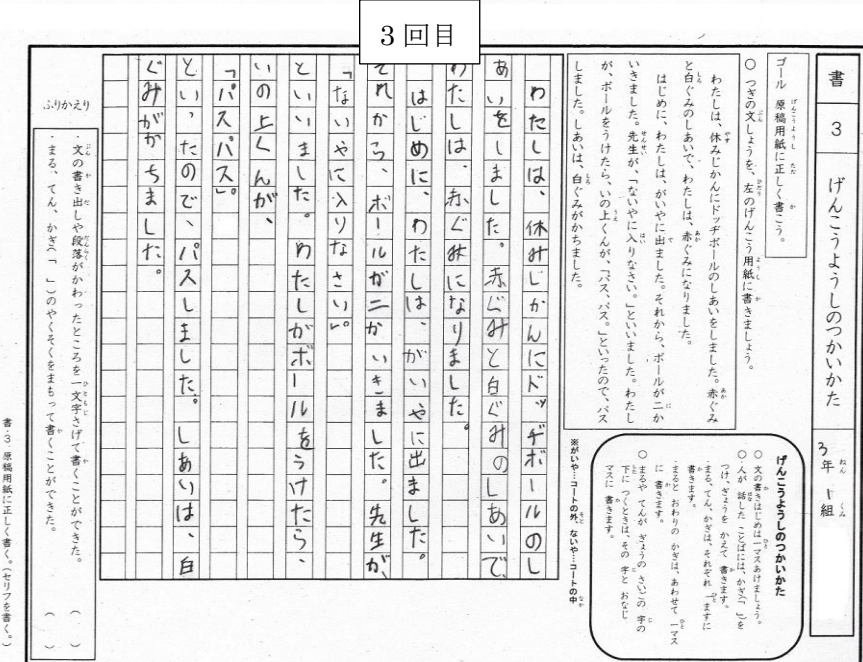 3回目
書 3 げんこうようしのつかいかた
3年 1組
ゴール 原稿用紙に正しく書こう。
○ つぎの文しょうを、左のげんこう用紙に書きましょう。
わたしは、休みじかんにドッヂボールのしあいをしました。赤ぐみ
と白ぐみのしあいで、わたしは、赤ぐみになりました。
はじめに、わたしは、がいやに出ました。それから、ボールが二か
いきました。先生が、「ないやに入りなさい。」といいました。わたし
が、ボールをうけたら、いの上くんが、「パス、パス。」といったので、パス
しました。しあいは、白ぐみがかちました。
げんこうようしのつかいかた
○ 文の書きはじめは一マスあけましょう。
○ 人が 話した ことばには、かぎ(「 」)を
つけ、ぎょうを かえて 書きます。
・まる、てん、かぎは、それぞれ 一ますに
書きます。
・まると おわりの かぎは、あわせて 一マス
に 書きます。
○ まるや てんが ぎょうの さいごの 字の
下に つくときは、その 字と おなじ
マスに 書きます。
※がいや…コートの外、ないや…コートの中
わたしは、休みじかんにドッヂボールのし
あいをしました。赤ぐみと白ぐみのしあいで、
わたしは、赤ぐみになりました。
はじめに、わたしは、がいやに出ました。
それから、ボールが二かいきました。先生が、
「ないやに入りなさい。」
といいました。わたしがボールをうけたら、
いの上くんが、
「パスパス」。
といったので、パスしました。しあいは、白
ぐみがかちました。
ふりかえり
・文の書き出しや段落がかわったところを一文字さげて書くことができた。 ( )
・まる、てん、かぎ(「 」)のやくそくをまもって書くことができた。 ( )
書・3 原稿用紙に正しく書く。(セリフを書く。)